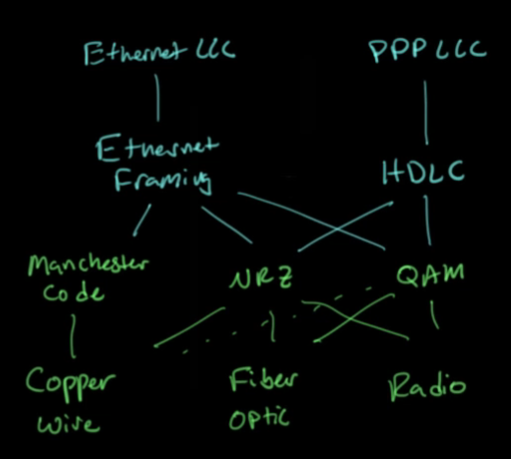 Ethernet LLC
PPP LLC
Ethernet
Framing
HDLC
Manchester
Code
NRZ
QAM
Copper
Wire
Fiber
Optic
Radio